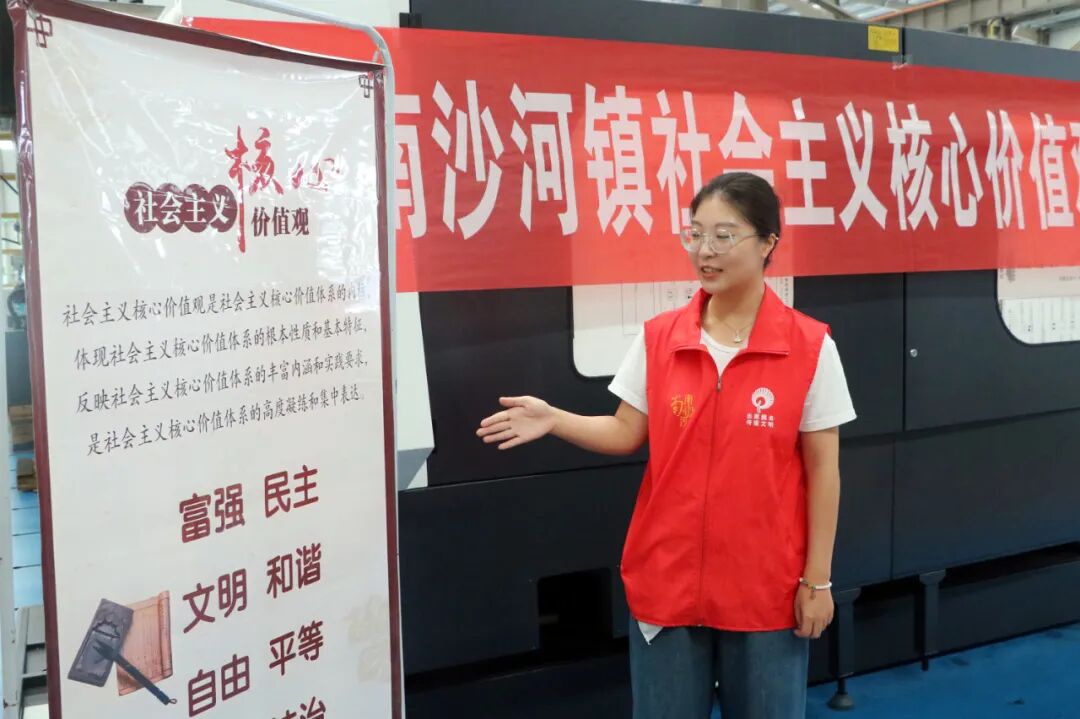 南沙河镇社会主义核心价值观
核心
社会主义
价值观
社会主义核心价值观是社会主义核心价值体系的内核,
体现社会主义核心价值体系的根本性质和基本特征,
反映社会主义核心价值体系的丰富内涵和实践要求,
是社会主义核心价值体系的高度凝练和集中表达。
富强 民主
文明 和谐
自由 平等
法治
志愿服务
传播文明